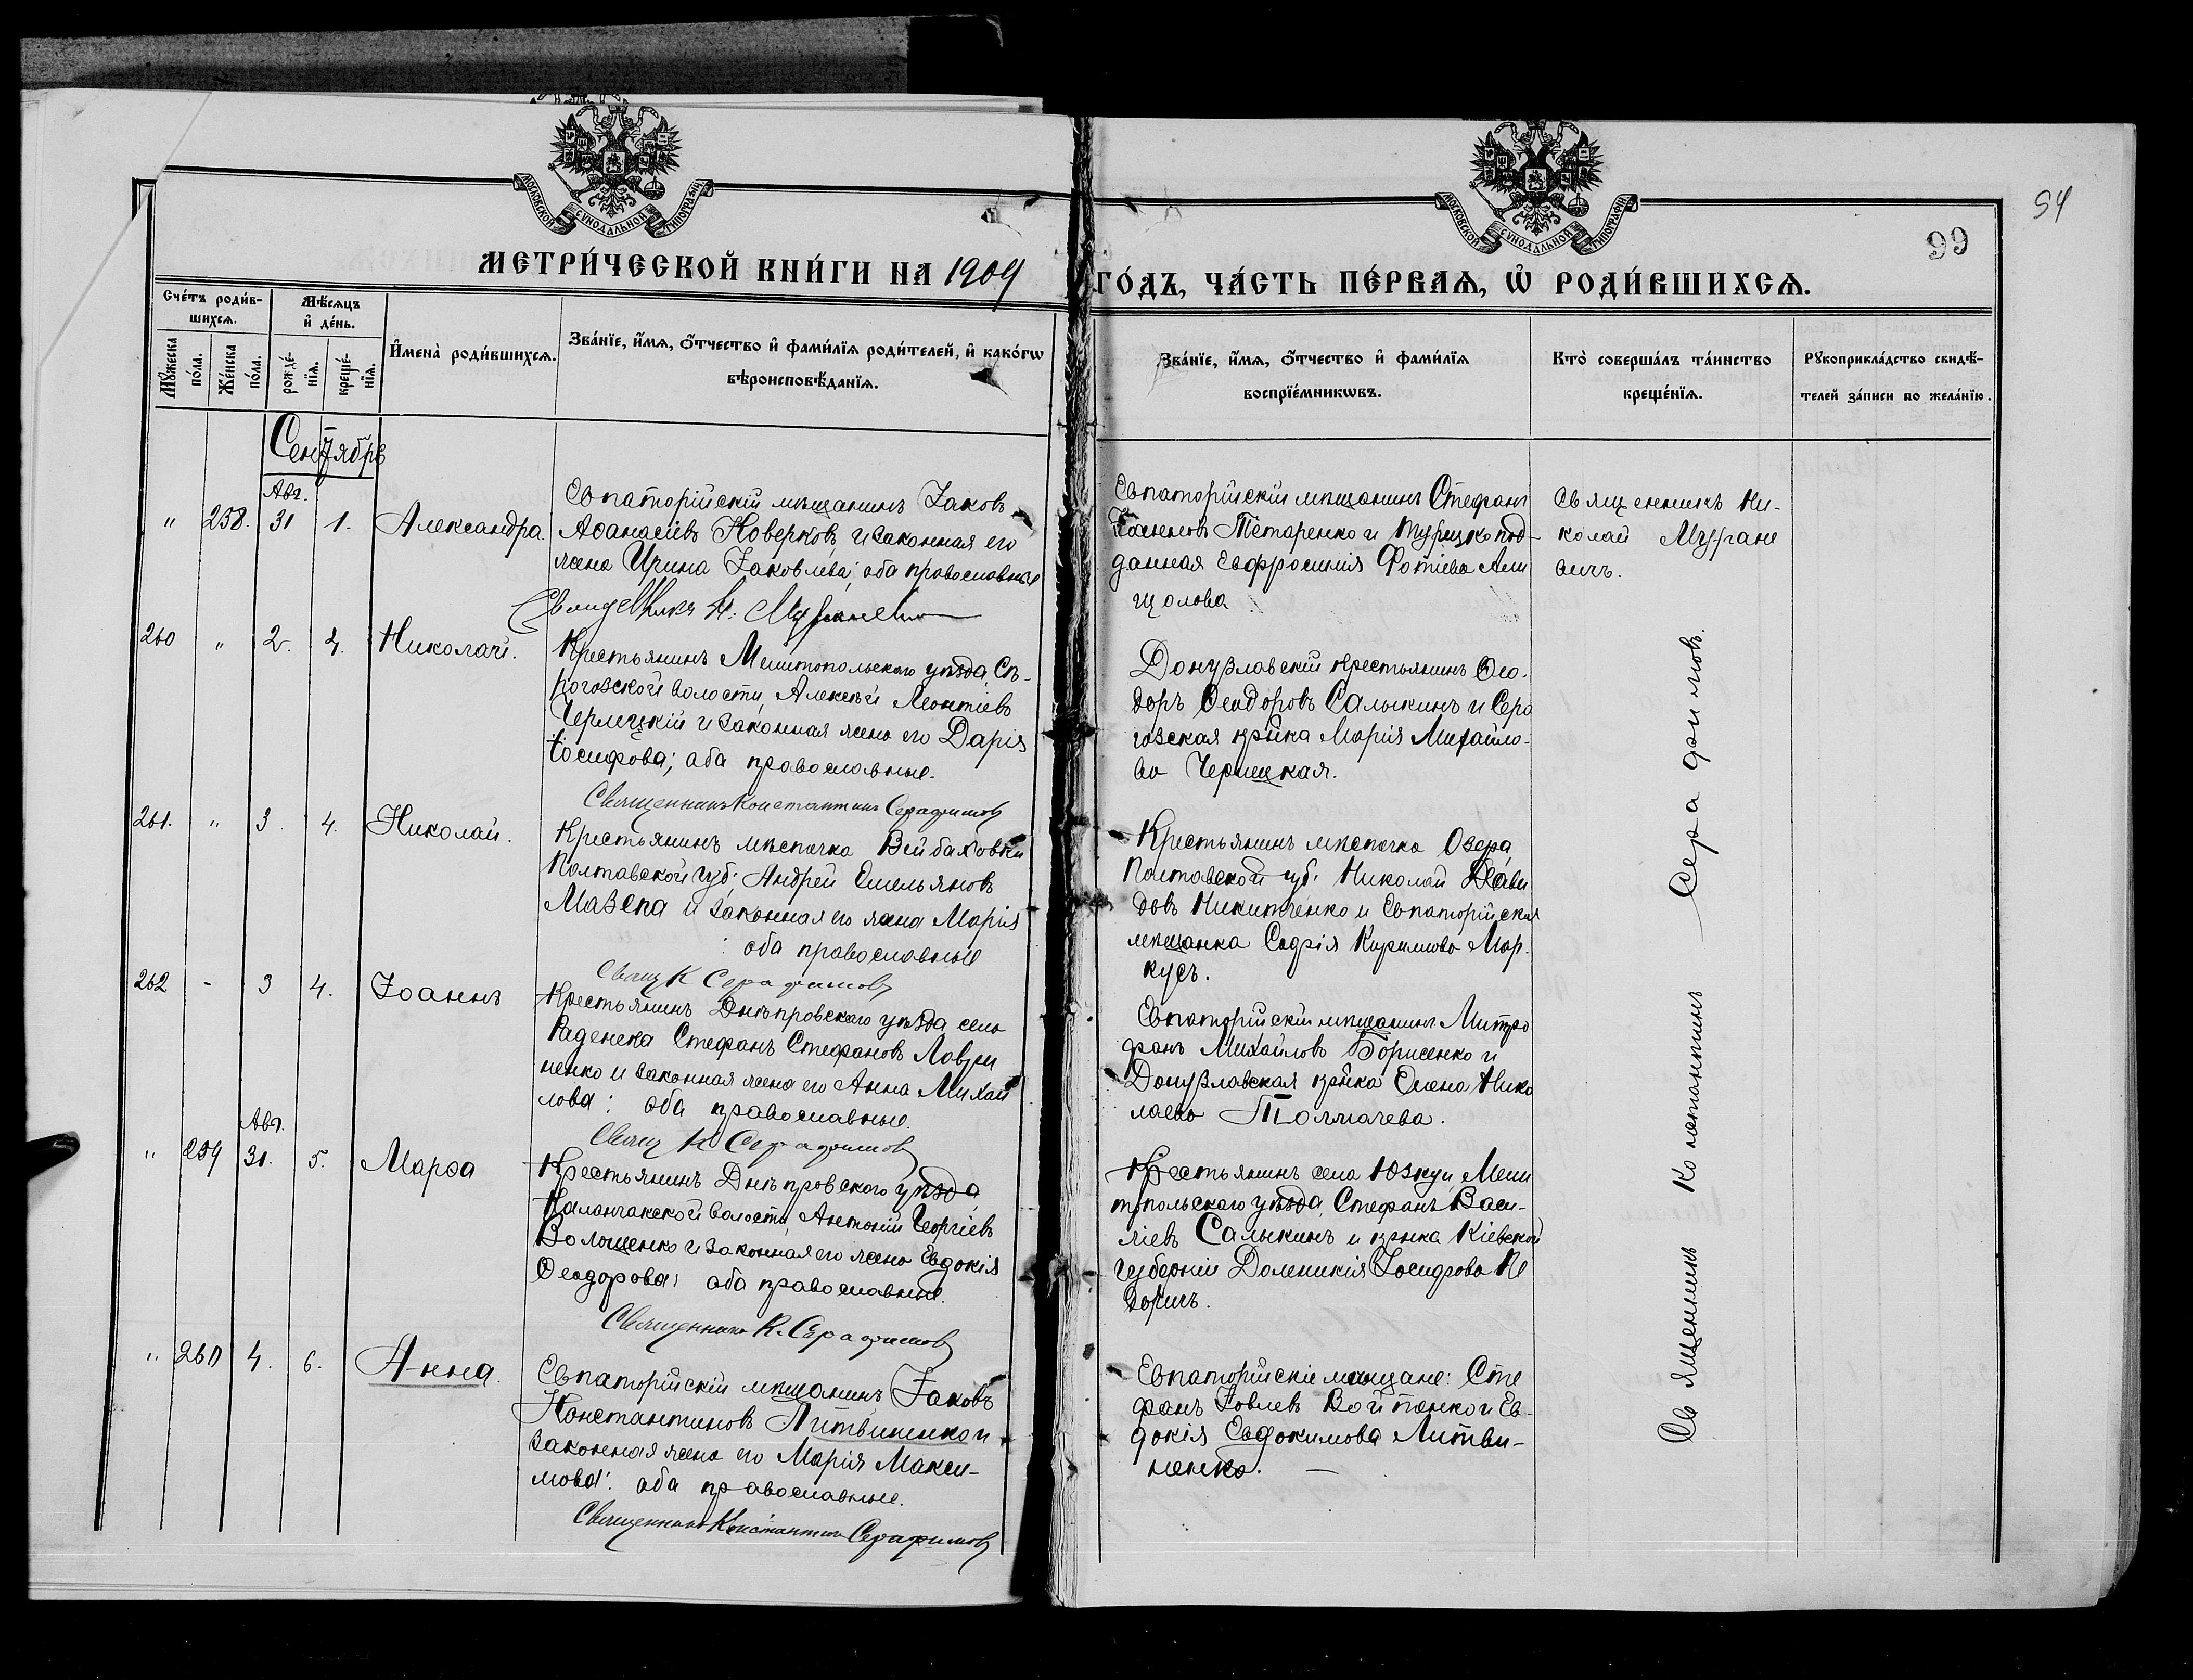 МОСКОВСКОЙ СѴНОДАЛЬНОЙ ТИПОГРАФІИ
МОСКОВСКОЙ СѴНОДАЛЬНОЙ ТИПОГРАФІИ
94
99
МЕТРИ́ЧЕСКОЙ КНИ́ГИ НА 1909 ГО́ДЪ, ЧА́СТЬ ПЕ́РВАѦ, Ѡ҆ РОДИ́ВШИХСѦ.
Сче́тъ роди́в-
шихсѧ.
Мꙋ́жеска по́ла.
Же́нска по́ла.
Мѣ́сѧцъ
и҆ де́нь.
рожде́-
нїѧ.
креще́-
нїѧ.
И҆мена̀ роди́вшихсѧ.
Зва́нїе, и҆́мѧ, ѻ҆́тчество и҆ фами́лїѧ роди́телей, и҆ како́гѡ
вѣроисповѣ́данїѧ.
Зва́нїе, и҆́мѧ, ѻ҆́тчество и҆ фами́лїѧ
воспрїе́мникѡвъ.
Кто̀ соверша́лъ та́инство
креще́нїѧ.
Рꙋкоприкла́дство свидѣ́-
телей за́писи по жела́нїю.
Сентябрь
Авг.
" 258. 31 1. Александра.
Евпаторійскій мѣщанинъ Іаковъ
Аѳанасіевъ Коверковъ и законная его
жена Ирина Іаковлева; оба православные
Евпаторійскій мѣщанинъ Стефанъ
Тетаренко и Турецко под-
данная Евфросинія Фотіева Али
щолова
Священникъ Ни-
колай Муране
вичъ.
260 " 2. 4. Николай.
Крестьянинъ Мелитопольскаго уѣзда, Сѣ-
рогозской волости, Алексѣй Леонтіевъ
Черницкій и законная жена его Дарія
Іосифова; оба православные.
Священникъ Константинъ Серафимовъ
Донузлавскій крестьянинъ Ѳео-
доръ Ѳеодоровъ Салыкинъ и Серо
гозская кр-нка Марія Михайло-
ва Черницкая.
261. " 3. 4. Николай.
Крестьянинъ мѣстечка Рейбаховки
Полтавской губ; Андрей Емельяновъ
Мазепа и законная его жена Марія
: оба православные
Свящ К Серафимовъ
Крестьянинъ мѣстечка Озера
Полтавской губ. Николай Дави
довъ Никитченко и Евпаторійская
мѣщанка Софія Кирилова Мар-
кусъ.
262 - 3 4. Іоаннъ
Крестьянинъ Днѣпровскаго уѣзда села
Раденска Стефанъ Стефановъ Лаври
ненко и законная жена его Анна Михай
лова: оба православные.
Свящ К Серафимовъ
Евпаторійскій мѣщанинъ Митро
фанъ Михайловъ Борисенко и
Донузлавская кр-нка Елена Нико
лаева Толмачева.
Авг.
" 259 31. 5. Марѳа
Крестьянинъ Днѣпровскаго уѣзда
Каланчакской волости, Антоній Георгіевъ
Волощенко и законная его жена Евдокія
Ѳеодорова: оба православные.
Священникъ К. Серафимовъ
Крестьянинъ села Юзкуи, Мели
топольскаго уѣзда, Стефанъ Васи-
ліевъ Салыкинъ и кр-нка Кіевской
губерніи Доминикія Іосифова
" 260 4. 6. Анна.
Евпаторійскій мѣщанинъ Іаковъ
Константиновъ Литвиненко и
законная жена его Марія Макси-
мова: оба православные.
Священникъ Константинъ Серафимовъ
Евпаторійскіе мѣщане: Сте
фанъ Іовлевъ Войтенко и Ев-
докія Евдокимова Литви-
ненко.
Священникъ Константинъ Серафимовъ.